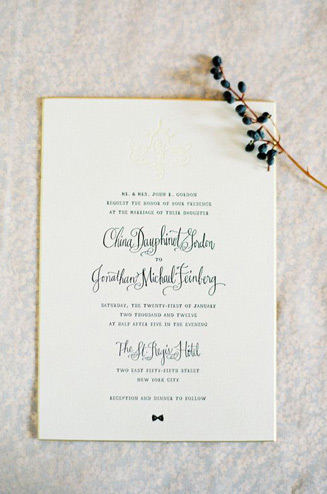 MR. & MRS. JOHN K. GORDON
REQUEST THE HONOR OF YOUR PRESENCE
AT THE MARRIAGE OF THEIR DAUGHTER
China Dauphinet Gordon
TO
Jonathan Michael Feinberg
SATURDAY, THE TWENTY-FIRST OF JANUARY
TWO THOUSAND AND TWELVE
AT HALF AFTER FIVE IN THE EVENING
The St. Regis Hotel
TWO EAST FIFTY-FIFTH STREET
NEW YORK CITY
RECEPTION AND DINNER TO FOLLOW